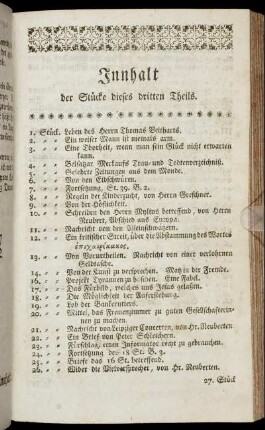 Innhalt
der Stücke dieses dritten Theils.
1. Stück. Leben des Herrn Thomas
2. Ein weiser Mann ist niemals arm.
3. Eine Thorheit, wenn man sein Glück nicht erwarten
kann.
4. Belsazar Merkaufs Trau- und Todtenverzeichniß.
5. Gelehrte Zeitungen aus dem Monde.
6. Von den Eidschwüren.
7. Fortsetzung, St. 39. B. 2.
8. Regeln der Kinderzucht, von Herrn
9. Von der Höflichkeit.
10. Schreiben den Herrn Mylius betreffend, von Herrn
Neubert, Abschied aus Europa.
11. Nachricht von den
12. Ein kritischer Streit, über die Abstammung des Wortes
ἐπιχαιρέκακος.
13. Von Vorurtheilen. Nachricht von einer verlohrnen
Geldtasche.
14. Von der Kunst zu versprechen. in der Fremde.
16. Project Tyrannen zu Eine Fabel.
17. Das Fürbild, welches uns Jesus gelassen.
18. Die Möglichkeit der Auferstehung.
19. Lob der Bankerutiers.
20. Mittel, das Frauenzimmer zu guten Gesellschafterin-
nen zu machen.
21. Nachricht von Leipziger Concerten, von Hr. Neuberten
22. Ein Brief von Peter Schleichern.
23. Fürschlag, einen Informator recht zu gebrauchen.
24. Fortsetzung des 18 St. B. 3.
25. Briefe das 16 St. betreffend.
26. Wider die Vielversprecher, von Hr. Neuberten.
27. Stück